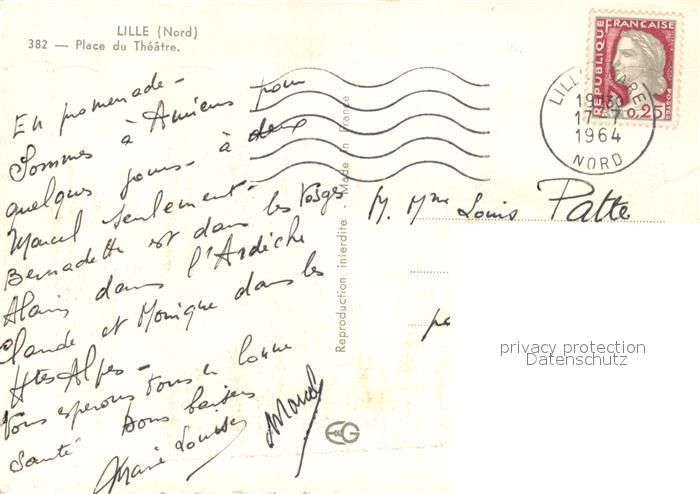 LILLE (Nord)
382 — Place du Théâtre.
En promenade -
Sommes à Amiens pour
quelques jours - à deux
Marcel seulement -
Bernadette est dans les Vosges
Alain dans l'Ardèche
Claude et Monique dans les
Htes Alpes -
Vous espérons tous en bonne
santé Bons baisers
Marie Louise
Marcel
Reproduction interdite. Made in France
EG
REPUBLIQUE FRANÇAISE
POSTES
0,25
LILLE GARE
19H30
17-7
1964
NORD
M. Mme Louis Patte
privacy protection
Datenschutz